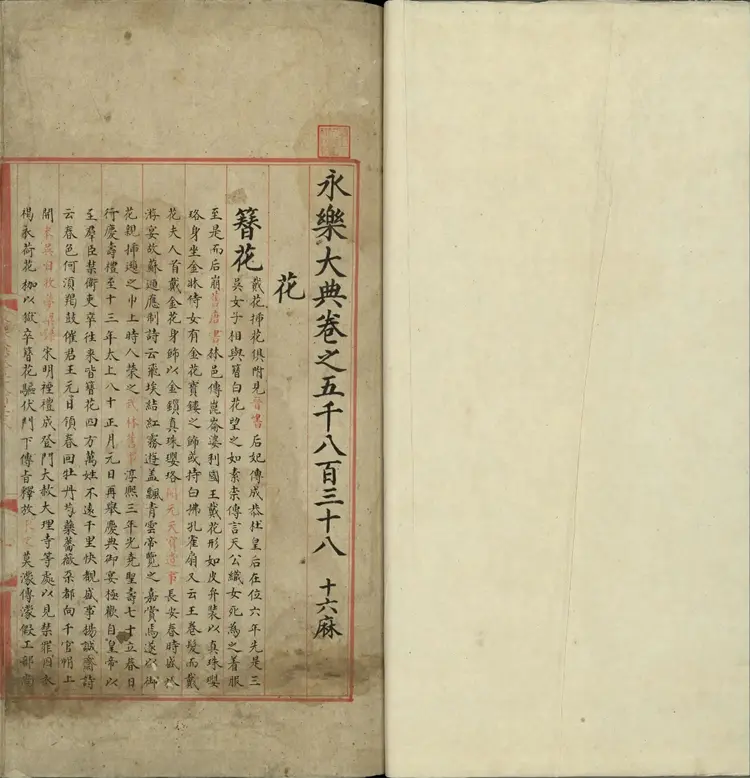 永樂大典卷之五千八百三十八 十六麻
花
簪花 戴花揷花俱附見晉書后妃傳成恭杜皇后在位六年先是三
吳女子相與簪白花望之如素柰傳言天公織女死為之着服
至是而后崩舊唐書林邑傳崑崙婆利國王戴花形如皮弁裝以真珠瓔
珞身坐金牀侍女有金花寶鏤之飾或持白拂孔雀扇又云王卷髮而戴
花夫人首戴金花身飾以金鎖真珠瓔珞開元天寶遺事長安春時盛於
游宴故蘇頲應制詩云飛埃結紅霧遊蓋飄青雲帝覽之嘉賞焉遂以御
花親揷頲之巾上時人榮之武林舊事淳熙三年光堯聖壽七十立春日
行慶壽禮至十三年太上八十正月元日再舉慶典御宴極歡自皇帝以
至羣臣禁衛吏卒往來皆簪花四方萬姓不遠千里快覩盛事楊誠齋詩
云春色何湏羯鼓催君王元日領春回牡丹芍藥薔薇朶都向千官帽上
開 宋明禋禮成登門大赦大理寺等處以見禁罪囚衣
褐衣荷花枷以獄卒簪花驅伏門下傳旨釋放 莫濛傳濛假工部尚